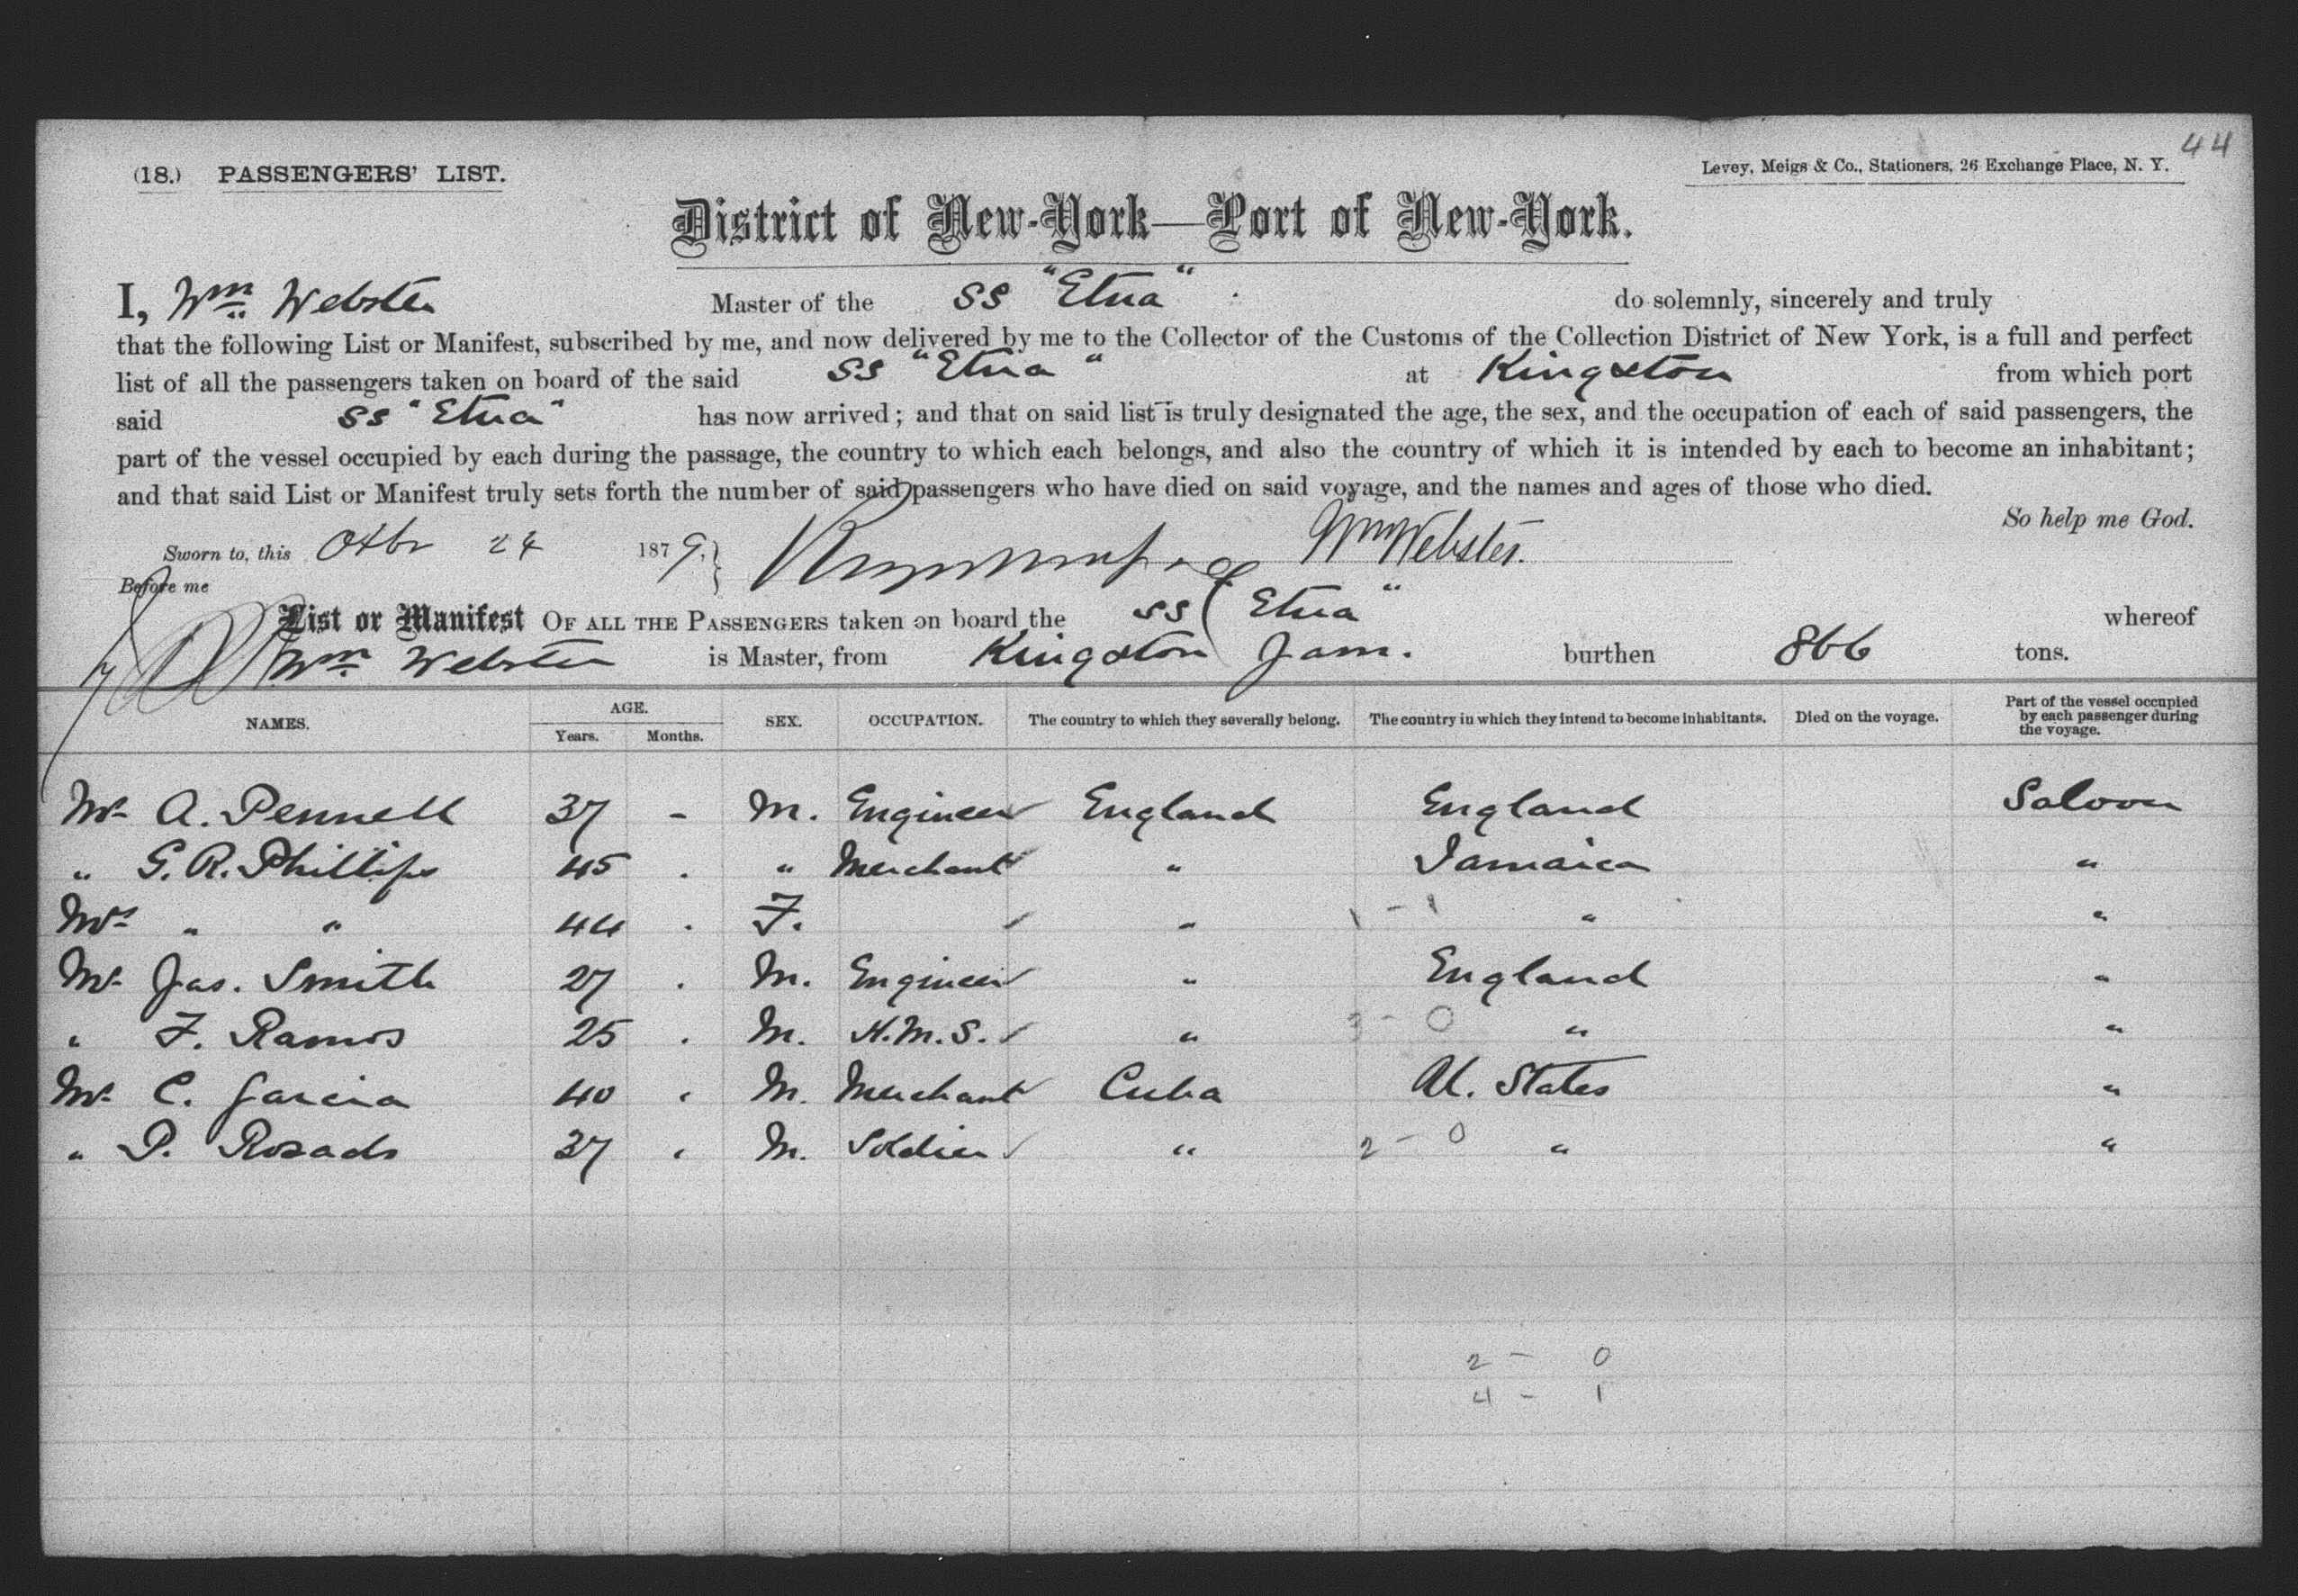 44
(18.) PASSENGERS' LIST. Levey, Meigs & Co., Stationers, 26 Exchange Place, N. Y.
District of New-York—Port of New-York.
I, Wm Webster Master of the SS "Etna" do solemnly, sincerely and truly
that the following List or Manifest, subscribed by me, and now delivered by me to the Collector of the Customs of the Collection District of New York, is a full and perfect
list of all the passengers taken on board of the said SS "Etna" at Kingston from which port
said SS "Etna" has now arrived; and that on said list is truly designated the age, the sex, and the occupation of each of said passengers, the
part of the vessel occupied by each during the passage, the country to which each belongs, and also the country of which it is intended by each to become an inhabitant;
and that said List or Manifest truly sets forth the number of said passengers who have died on said voyage, and the names and ages of those who died.
So help me God.
Sworn to, this Octbr 24 1879. } Wm Webster.
Before me
List or Manifest OF ALL THE PASSENGERS taken on board the SS "Etna" whereof
Wm Webster is Master, from Kingston Jam. burthen 866 tons.
NAMES. AGE. Years. Months. SEX. OCCUPATION. The country to which they severally belong. The country in which they intend to become inhabitants. Died on the voyage. Part of the vessel occupied by each passenger during the voyage.
Mr A. Pennell 37 - M. Engineer England England Saloon
" G. R. Phillips 45 . " Merchant " Jamaica "
Mrs " " 44 . F. " 1 - 1 " "
Mr Jas. Smith 27 . M. Engineer " England "
" F. Ramos 25 . M. H.M.S. " 3 - 0 " "
Mr C. Garcia 40 . M. Merchant Cuba U. States "
" P. Rosado 37 . M. Soldier " 2 - 0 " "
2 - 0
4 - 1